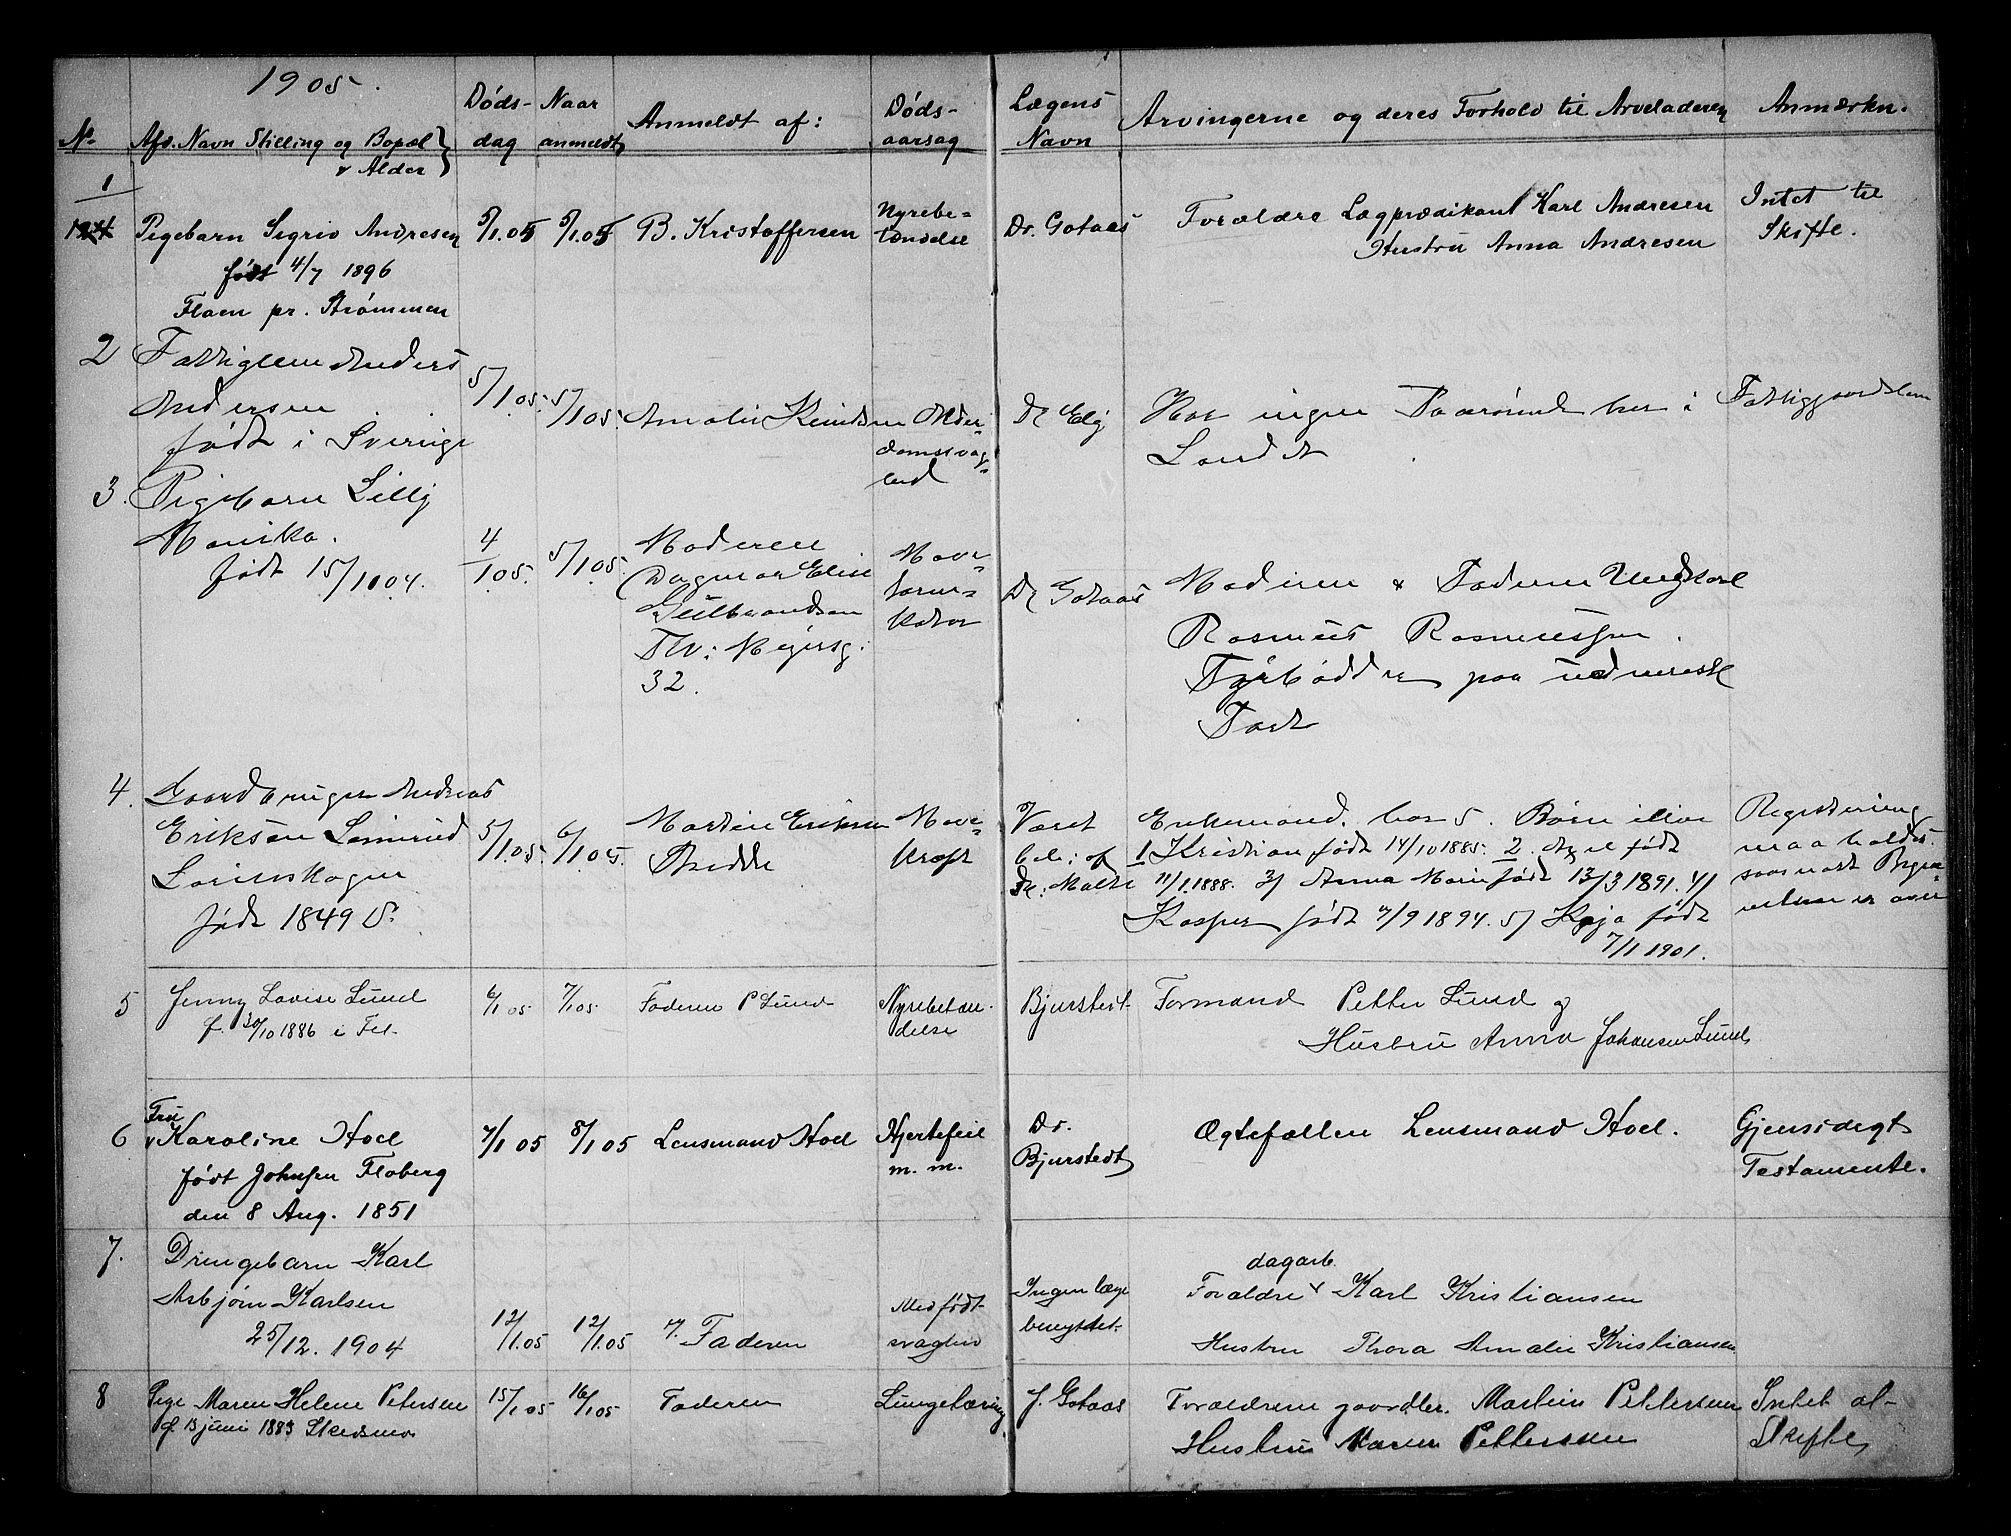 1905.
No
Afd. Navn Stilling og Bopæl
& Alder
Døds-
dag
Naar
anmeldt
Anmeldt af:
Døds-
aarsag
Lægens
Navn
Arvingerne og deres Forhold til Arveladeren
Anmærkn.
1
Pigebarn Sigrid Andresen
født 4/7 1896
Flaen pr. Strømmen
5/1.05
5/1.05
B. Kristoffersen
Nyrebe-
tændelse
Dr. Gotaas
Forældre Lægprædikant Karl Andresen
Hustru Anna Andresen
Intet til
Skifte.
2
Fattiglem Anders
Andersen
født i Sverige
5/1.05.
5/1.05.
Amalie Knudsen
Alder-
domssvag-
hed
Dr Elg
Har ingen Paarørende her i
Landet
Fattiggaardslem
3.
Pigebarn Lilly
Monika.
født 15/11 04.
4
/1.05.
5/1.05.
Moderen
Dagmar Elise
Gulbrandsen
Thv: Meyersg.
32.
Mave-
tarm-
katar
Dr Gotaas
Moderen & Faderen Ungkarl
Rasmus Rasmussen.
Fyrbødder paa udenriksk
Fart
4.
Gaardbruger Andreas
Eriksen
Lørenskogen
født 1849
5/1.05.
6/1.05.
Martin Eriksen
Bredde
Mave-
kræft
Været
beh: af
Dr: Malte
Enkemand. har 5. Børn ilive
1 Kristian født 14/10 1885. 2. Axel født
11/1.1888. 3/ Anna Marie født 13/3 1891. 4/
Kasper født 7/9 1894. 5/ Kaja født
7/1 1901.
Registrering
maa holdes
saasnart Begra-
velsen er over
5
Jenny Lovise Lund
f. 30/10 1886 i Fet
6/1 05
7/1 05
Faderen P Lund
Nyrebetæn-
delse
Bjurstedt
Formand Petter Lund og
Hustru Anna Johansen Lund
6
Fru
Karoline Hoel
født Johnsen Floberg
den 8 Aug. 1851
7/1 05
8/1 05
Lensmand Hoel
Hjertefeil
m. m.
Dr.
Bjurstedt
Ægtefællen Lensmand Hoel.
Gjensidigt
Testamente.
7.
Drengebarn Karl
Asbjørn Karlsen
25/12. 1904
12/1.05
12/1.05
Faderen
Medfødt
svaghed
Ingen læge
benyttet.
dagarb.
Forældre Karl Kristiansen
Hustru Thora Amalie Kristiansen
8
Pige Maren Helene Petersen
f. 13 juni 1885 Skedsmo
15/1 05
16/1 05
Faderen
Lungetæring
J. Gotaas
Forældrene gaardbr. Martin Pettersen
Hustru Maren Pettersen
Intet at
Skifte